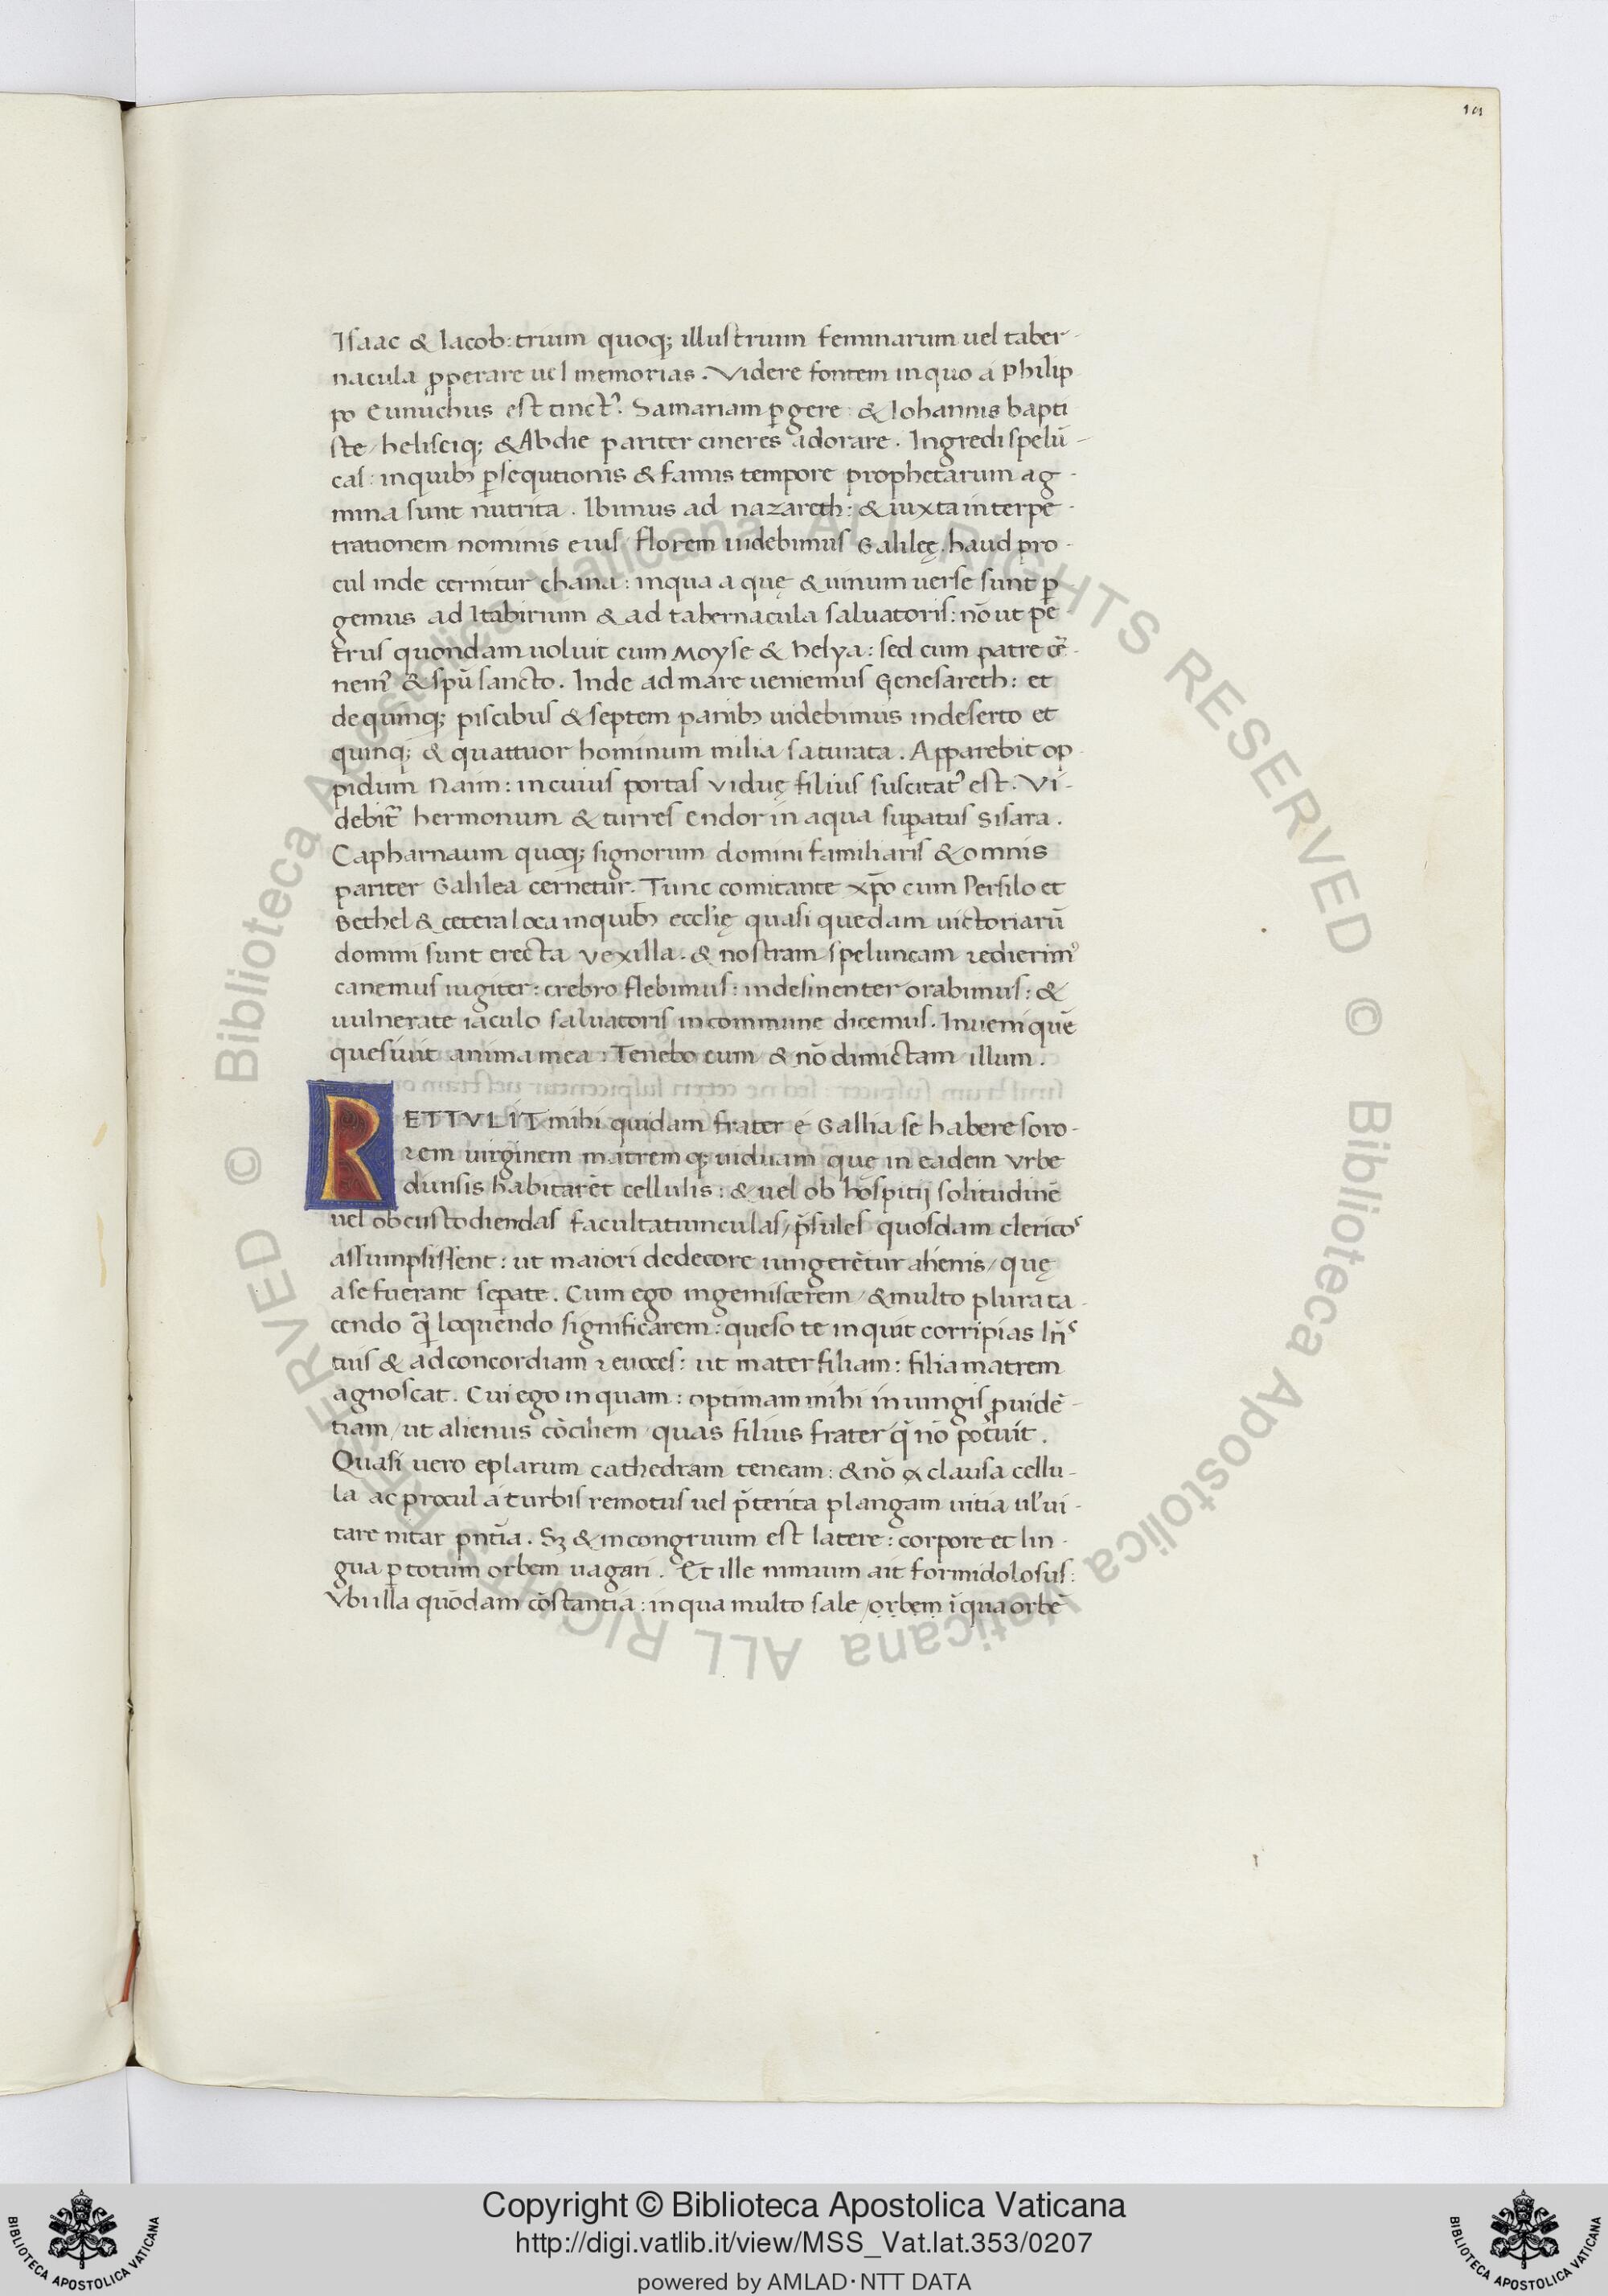 Isaac & Iacob: trium quoq; illustrium feminarum uel taber-
nacula ꝓperare uel memorias. Videre fontem in quo a Philip
po Eunuchus est tinctꝰ. Samariam ꝑgere: & Iohannis bapti
ste / heliseiq; & Abdie pariter cineres adorare. Ingredi spelū-
cas: in quibꝫ ꝑsequtionis & famis tempore prophetarum ag-
mina sunt nutrita. Ibimus ad nazareth: & iuxta interpe-
trationem nominis eius / florem uidebimus Galileę. haud pro-
cul inde cernitur chana: in qua aquę & uinum uerse sunt ꝑ
gemus ad Itabirium & ad tabernacula saluatoris: nō ut pe
trus quondam uoluit cum Moyse & helya: sed cum patre cē-
nemꝰ & spū sancto. Inde ad mare ueniemus Genesareth: et
de quinq; piscibus & septem panibꝫ uidebimus in deserto et
quinq; & quattuor hominum milia saturata. Apparebit op
pidum Naim: in cuius portas viduę filius suscitatꝰ est. Vi-
debit̃ hermonum & turres Endor in aqua suꝑatus Sisara.
Capharnaum quoq; signorum domini familiaris & omnis
pariter Galilea cernetur. Tunc comitante xp̄o cum Persilo et
Bethel & cetera loca in quibꝫ eccl'ię quasi quedam uictoriarū
domini sunt erecta vexilla. & nostram speluncam redierimꝰ
canemus iugiter: crebro flebimus: indesinenter orabimus: &
uulnerate iaculo saluatoris in commune dicemus. Inueni quē
quesiuit anima mea: Tenebo eum & nō dimictam illum.
RETTVLIT mihi quidam frater é Gallia se habere soro-
rem uirginem matremq; uiduam quę in eadem Vrbe
diuisis habitarēt cellulis: & uel ob hospitij solitudinē
uel ob custodiendas facultatiunculas / p̄sules quosdam clericoˢ
assumpsissent: ut maiori dedecore iungerētur alienis / quę
a se fuerant seꝑate. Cum ego ingemiscerem / & multo plura ta-
cendo q̃ loquendo significarem: queso te inquit corripias lr̄ˢ
tuis & ad concordiam reuoces: ut mater filiam: filia matrem
agnoscat. Cui ego inquam: optimam mihi iniungis ꝓuidē-
tiam / ut alienus cōciliem / quas filius frater q̄ nō potuit.
Quasi uero eplarum cathedram teneam: & nō clausa cellu-
la ac procul á turbis remotus uel p̄terita plangam uitia ul' ui-
tare nitar pn̄tia. Sꝫ & incongruum est latere: corpore et lin-
gua ꝑ totum orbem uagari. Et ille nimium ait formidolosus:
Vbi illa quōdam cōstantia: in qua multo sale / orbem ī qua orbē
Copyright © Biblioteca Apostolica Vaticana
http://digi.vatlib.it/view/MSS_Vat.lat.353/0207
powered by AMLAD·NTT DATA
BIBLIOTECA APOSTOLICA VATICANA
BIBLIOTECA APOSTOLICA VATICANA
© Biblioteca Apostolica Vaticana ALL RIGHTS RESERVED
© Biblioteca Apostolica Vaticana ALL RIGHTS RESERVED